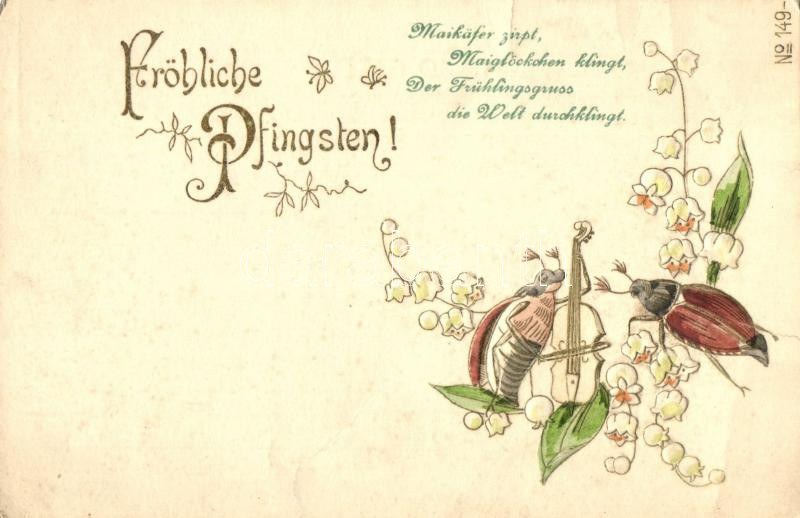 Fröhliche
Pfingsten!
Maikäfer zirpt,
Maiglöckchen klingt,
Der Frühlingsgruss
die Welt durchklingt.
No 149-